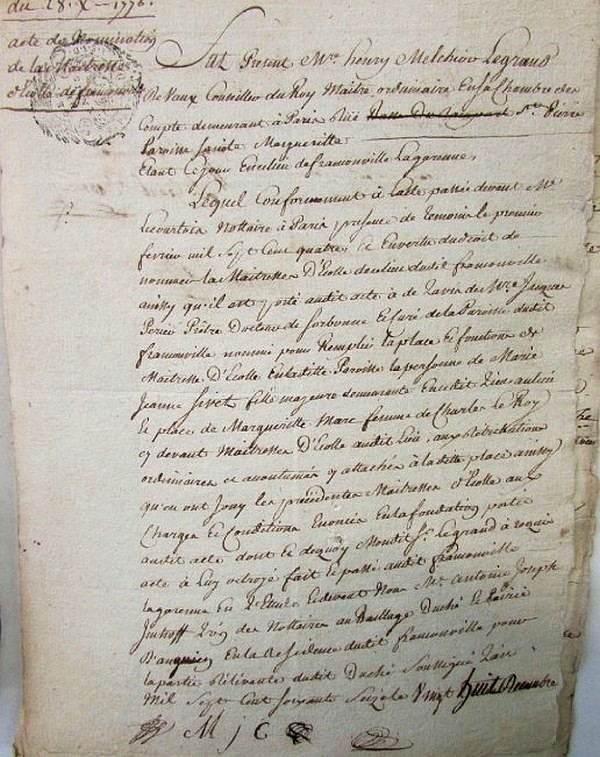 du 28 X 1776.
acte de Nomination
de la Maitresse
d'Ecolle de framonville
Fut Present Mre henry Melchior Legrand
De Vaux Conseiller du Roy Maitre ordinaire En sa Chambre des
Compte demeurant à Paris Ste Pierre
Paroisse Sainte Margueritte
Etant Ce jour En Ce lieu de framonville Lagarenne,
Lequel Conformement à l'acte passée devant Me
Lecourtois Nottaire à Paris presence de Temoin le premier
fevrier mil Sept Cent quatre, Et En vertu du droit de
nommer la Maitresse D'Ecolle du lieu dudit framonville
ainssy qu'il est porté audit acte à de Mre Jacques
Perier Prêtre Docteur de Sorbonne Et Curé de la Paroisse dudit
framonville nommé pour Remplir la place Et fonctions de
Maitresse D'Ecolle En laditte Paroisse la personne de Marie
Jeanne Sivet fille majeure demeurante Encedit Lieu au lieu
Et place de Margueritte Marc femme de Charles Le Roy
cy devant Maitresse D'Ecolle audit Lieu, aux Retributions
ordinaires et accoutumés y attachée à laditte place ainssy
qu'en ont Jouy les précédentes Maitresses d'Ecolle aux
Charges Et Conditions Enoncées En la fondation portée
audit acte dont Et dequoy Mondit Sr Legrand à requis
acte à Luy octroyé fait Et passé audit framonville
lagarenne En L'Etude Et devant Nous Me Antoine Joseph
des Nottaires au Bailliage Duché Et Pairie
D'anguien En la Residence dudit framonville pour
la partie Rélévante dudit Duché Soussigné L'an
Mil Sept Cent Soixante Seize le Vingt huit Decembre
M J C